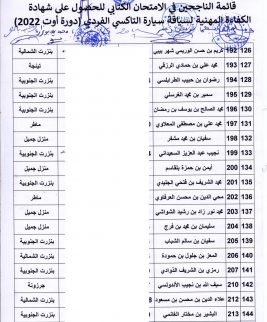 قائمة الناجحين في الامتحان الكتابي للحصول على شهادة
الكفاءة المهنية لسياقة سيارة التاكسي الفردي (دورة أوت 2022)
126 192 كريم بن حسن الوريمي شهر بيبي بنزرت الشمالية
127 193 محمد علي بن حمادي الرزقي تينجة
128 194 رضوان بن حبيب الطرابلسي بنزرت الجنوبية
129 195 سمير بن محمد الغرسلي بنزرت الجنوبية
130 196 محمد الصالح بن يوسف بن رمضان بنزرت الجنوبية
131 197 محمد علي بن مصطفى المعلاوي ماطر
132 198 سفيان بن محمد مشفر منزل جميل
133 199 نجيب عبد العزيز السعيداني بنزرت الجنوبية
134 200 أيمن بن حمزة بلقاسم منزل جميل
135 201 محمد الشريف بن فتحي الجليدي بنزرت الجنوبية
136 202 محي الدين بن محسن العرفاوي ماطر
137 203 محمد نور زاد بن رشيد الشواشي منزل جميل
138 204 سليمان بن محمد بن فرج منزل جميل
139 205 سفيان بن سالم الشباب بنزرت الجنوبية
140 208 المعز بن جلول بن حمودة بنزرت الشمالية
141 209 رمزي بن الشريف الذوادي بنزرت الجنوبية
142 210 سيف الله بن نجيب الأندلسي جرزونة
143 212 علاء الدين بن محسن بن مسعود بنزرت الشمالية
144 213 البشير بن مختار الغانمي بنزرت الجنوبية